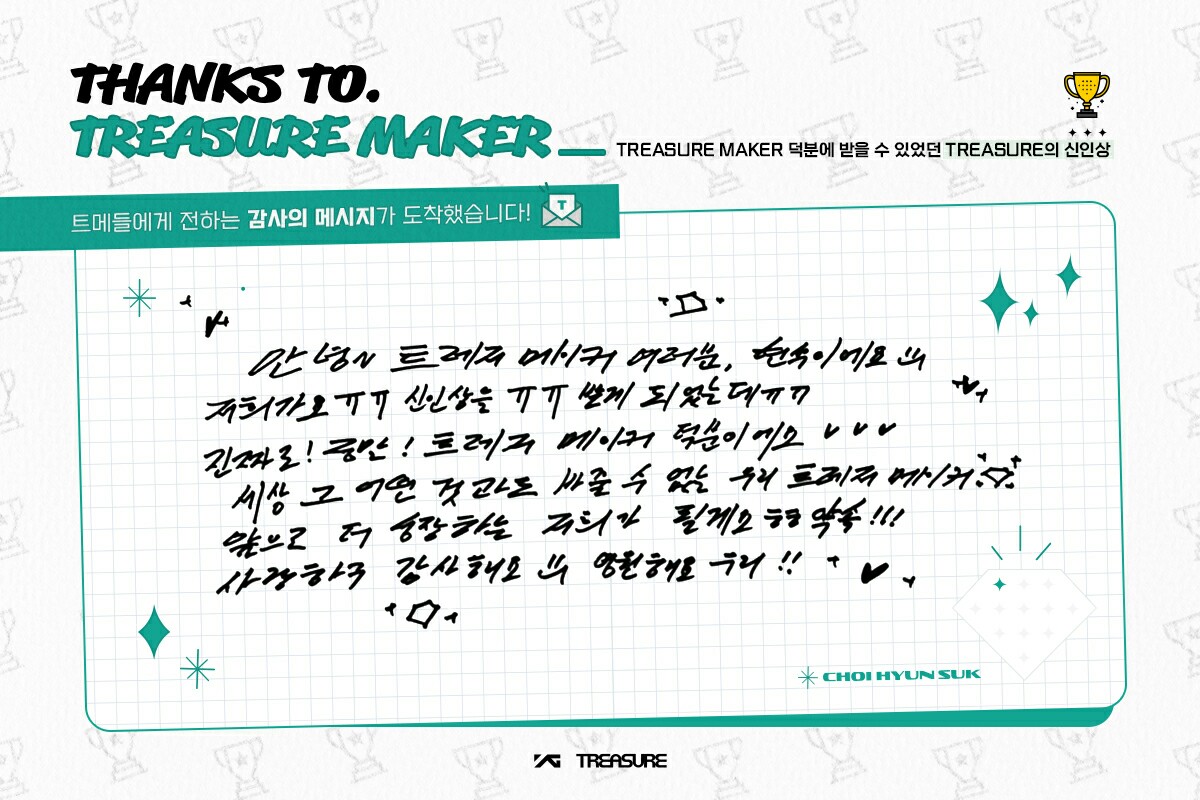 THANKS TO.
TREASURE MAKER
TREASURE MAKER 덕분에 받을 수 있었던 TREASURE의 신인상
트메들에게 전하는 감사의 메시지가 도착했습니다!
T
안녕~ 트레저 메이커 여러분, 현석이에요 !!
저희가요 ㅠㅠ 신인상을 ㅠㅠ 받게 되었는데ㅠㅠ
진짜로! 정말! 트레저 메이커 덕분이에요
세상 그 어떤 것과도 바꿀 수 없는 우리 트레저 메이커
앞으로 더 성장하는 저희가 될게요 약속!!!
사랑하구 감사해요 !! 영원해요 우리 !!
CHOI HYUN SUK
YG TREASURE